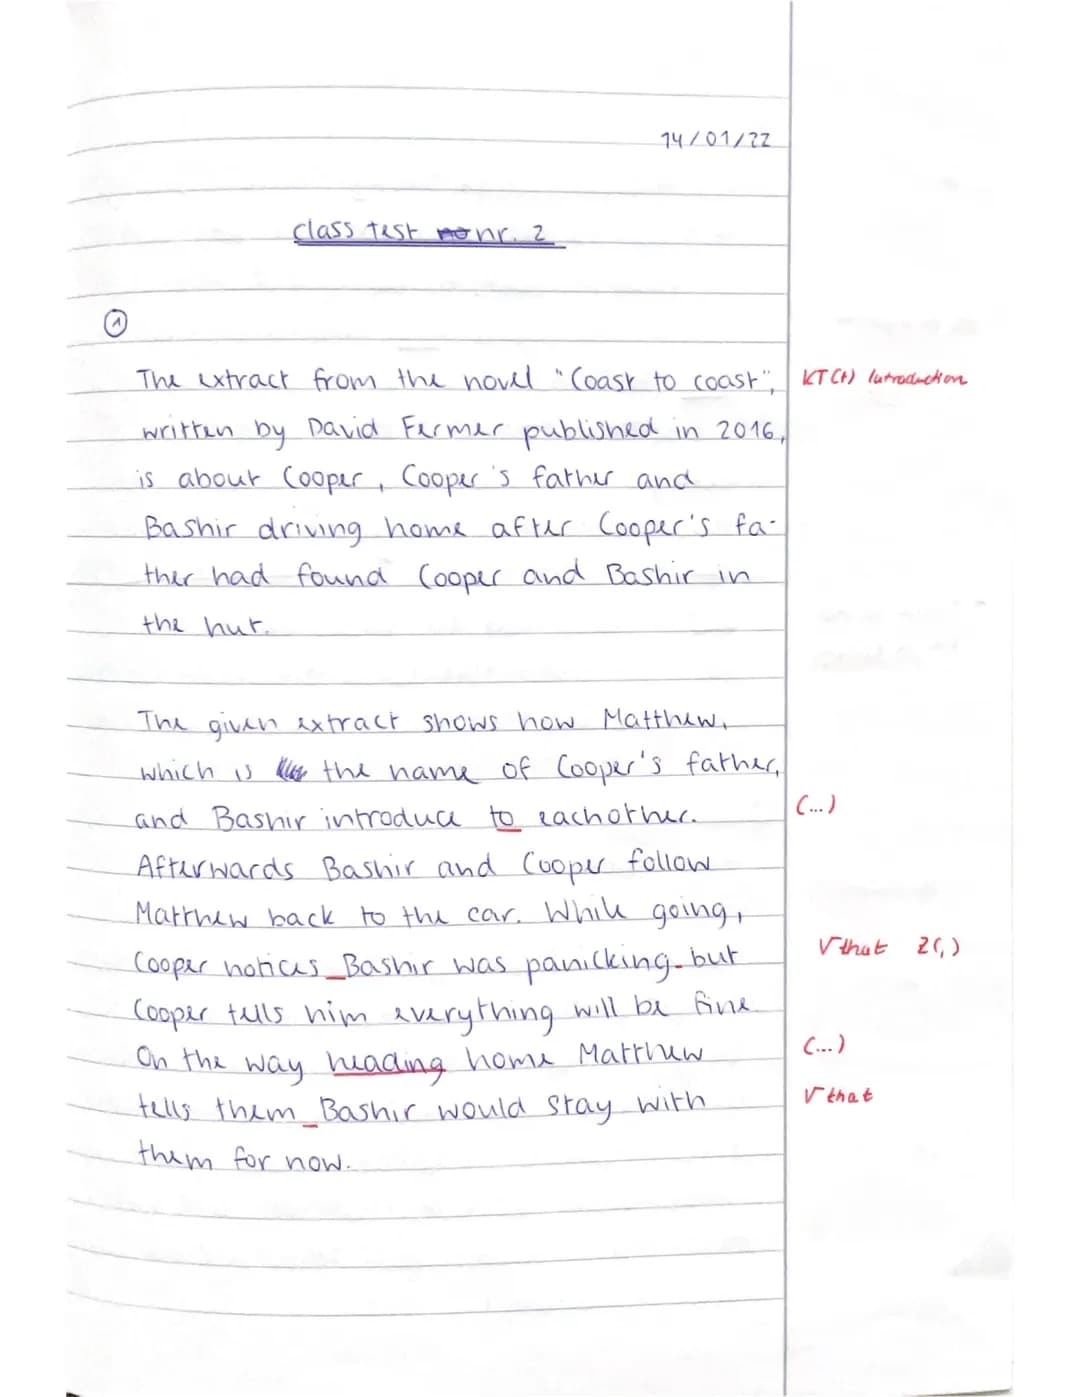 14/01/22
class test nr. 2
1
The extract from the novel "Coast to coast", KT (+) Introduction
written by David Fermer published in 2016,
is about Cooper, Cooper's father and
Bashir driving home after Cooper's fa-
ther had found Cooper and Bashir in
the hut.
The given extract shows how Matthew,
which is the name of Cooper's father,
and Bashir introduce to eachother. (...)
Afterwards Bashir and Cooper follow
Matthew back to the car. While going,
Cooper notices_Bashir was panicking_but √that Z(,)
Cooper tells him everything will be fine.
On the way heading home Matthew (...)
tells them_Bashir would stay with √that
them for now.